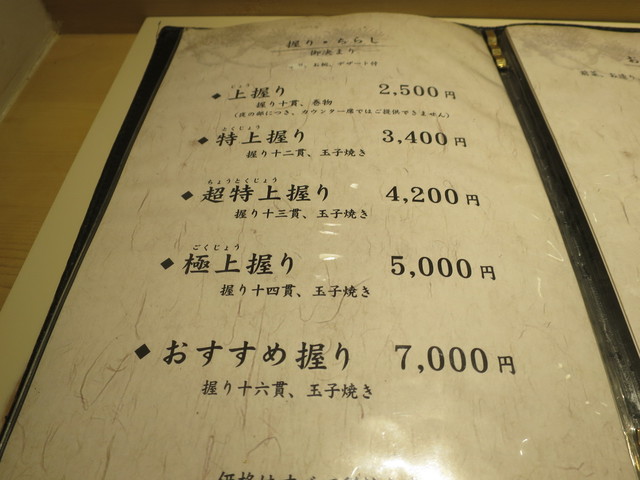 握り・ちらし
御決まり
お椀、デザート付
じょう
◆上握り 2,500円
握り十貫、巻物
(夜の部につき、カウンター席ではご提供できません)
とくじょう
◆特上握り 3,400円
握り十二貫、玉子焼き
ちょうとくじょう
◆超特上握り 4,200円
握り十三貫、玉子焼き
ごくじょう
◆極上握り 5,000円
握り十四貫、玉子焼き
◆おすすめ握り 7,000円
握り十六貫、玉子焼き